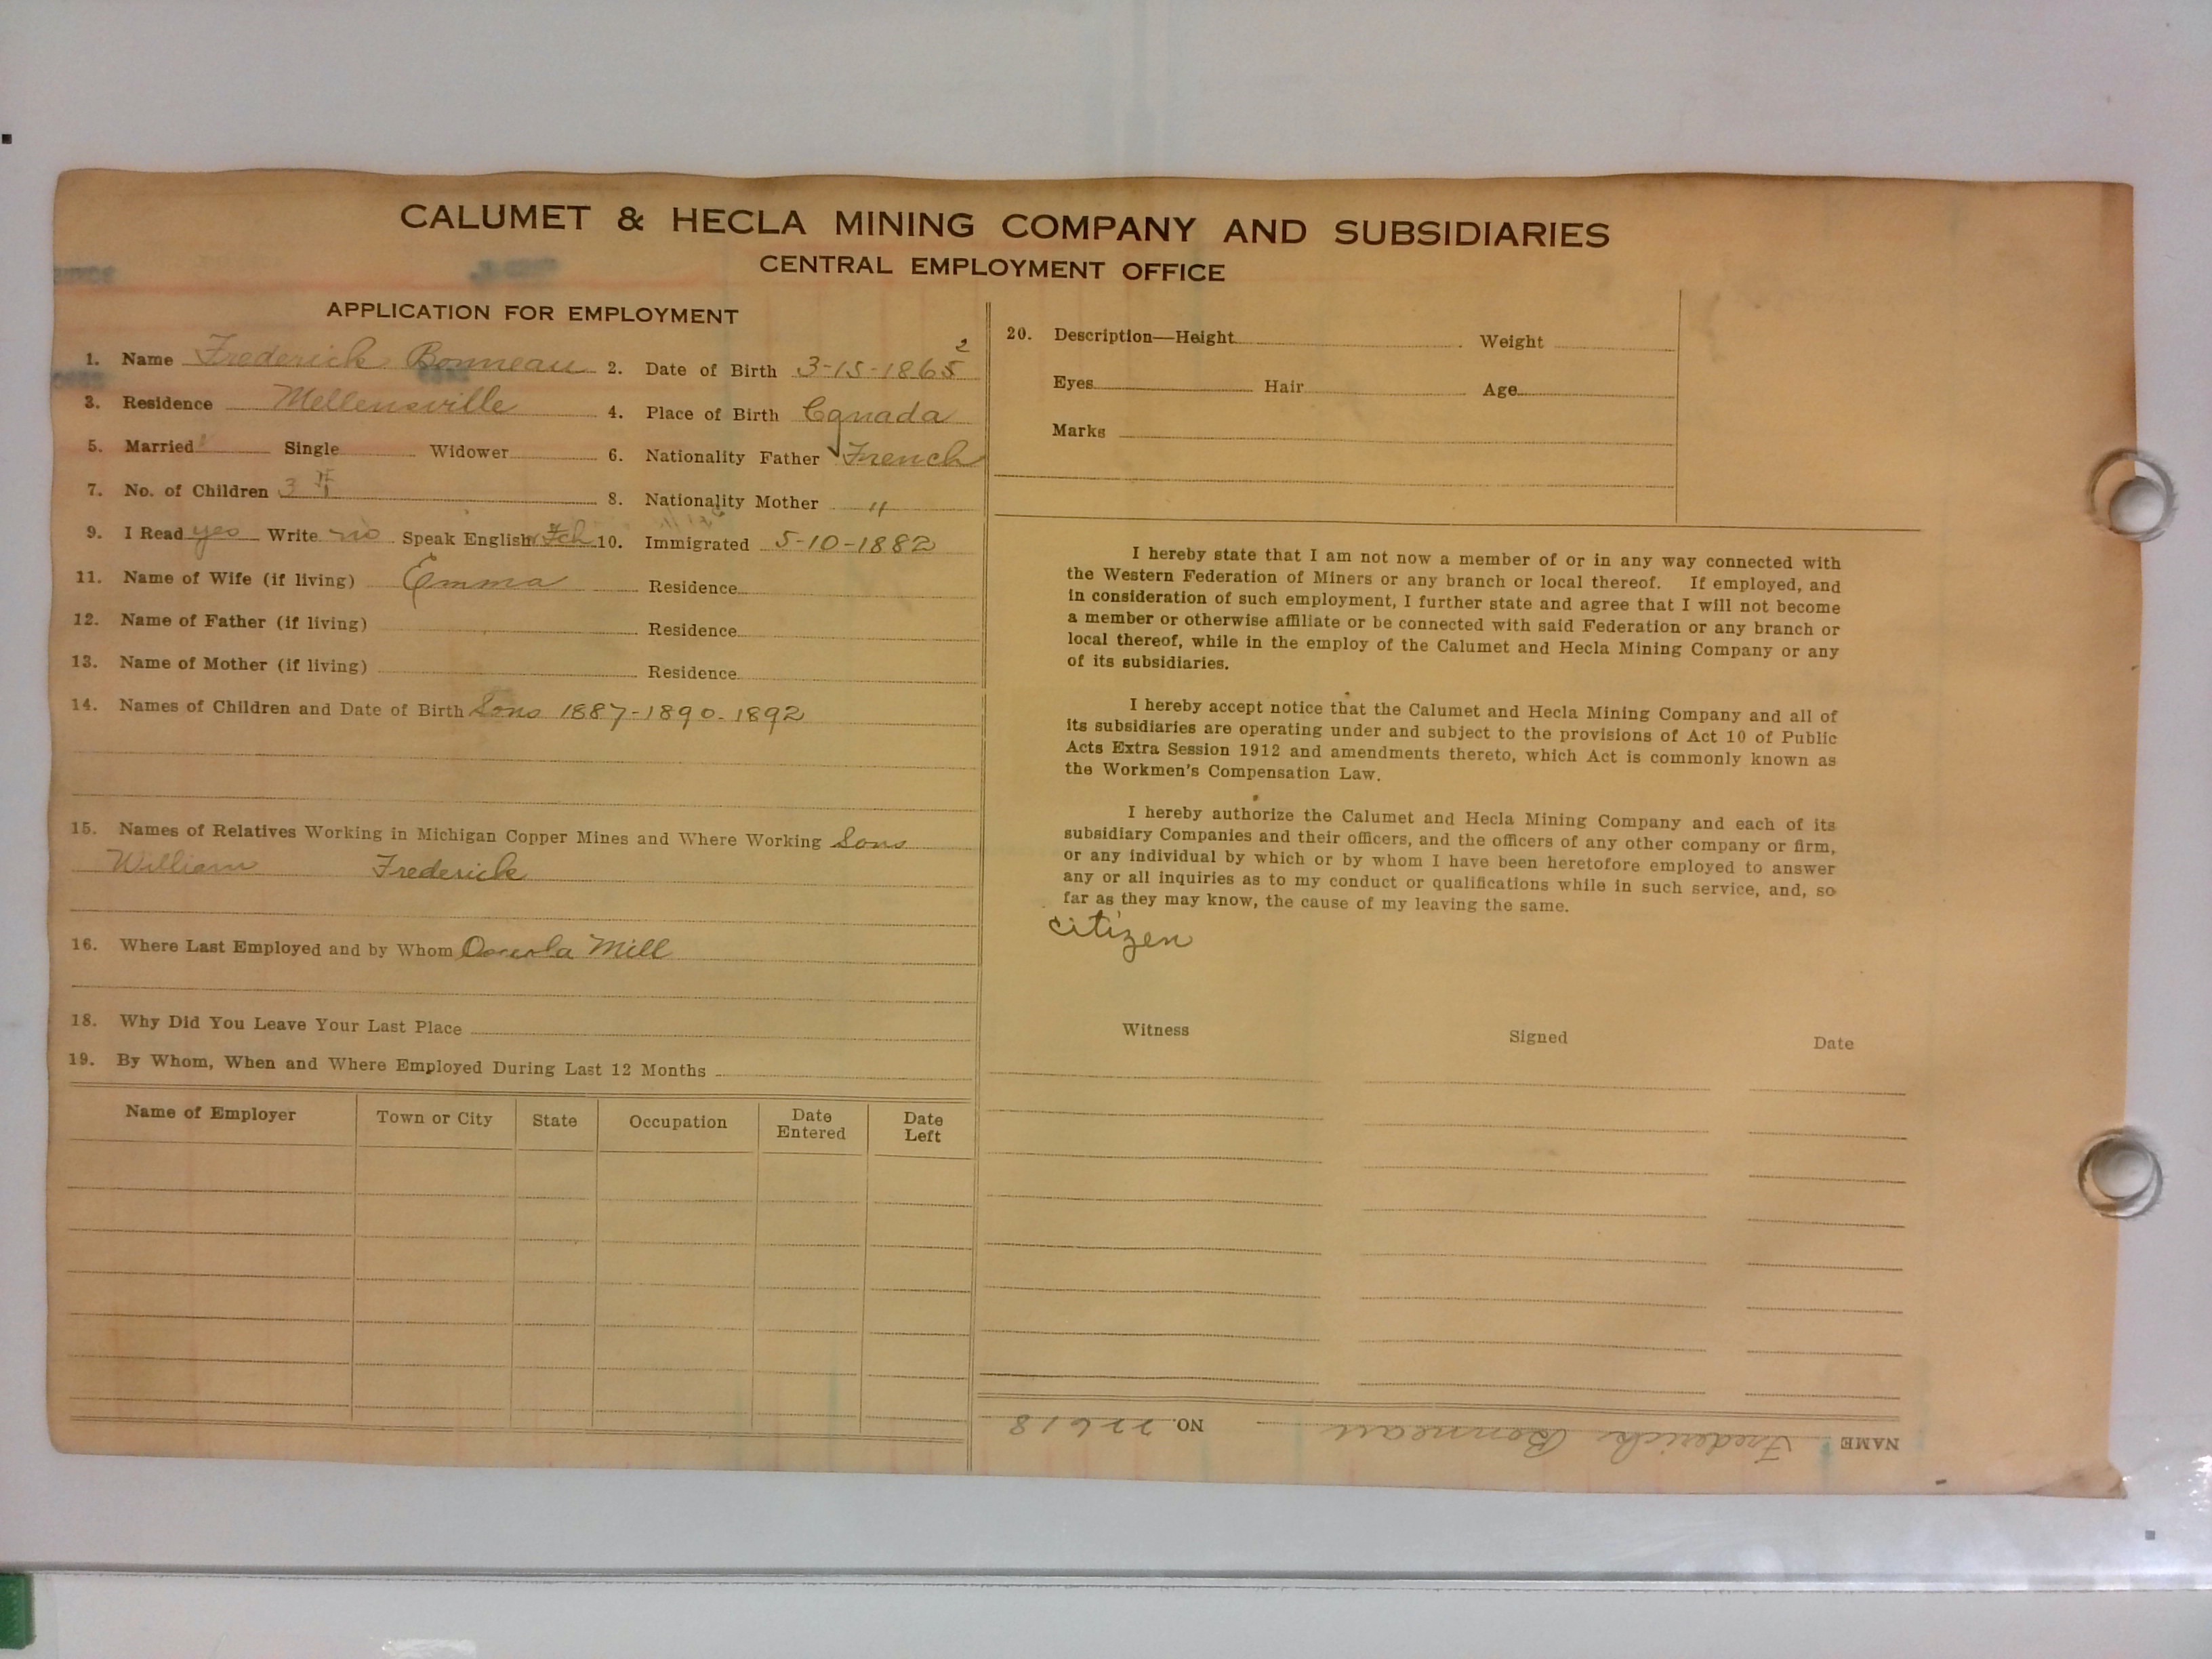 CALUMET & HECLA MINING COMPANY AND SUBSIDIARIES
CENTRAL EMPLOYMENT OFFICE
APPLICATION FOR EMPLOYMENT
1. Name Frederick Bonneau 2. Date of Birth 3-15-1865 2
3. Residence Mellensville 4. Place of Birth Canada
5. Married Single Widower 6. Nationality Father French
7. No. of Children 3 8. Nationality Mother "
9. I Read yes Write no Speak English Fch 10. Immigrated 5-10-1882
11. Name of Wife (if living) Emma Residence
12. Name of Father (if living) Residence
13. Name of Mother (if living) Residence
14. Names of Children and Date of Birth Sons 1887-1890-1892
15. Names of Relatives Working in Michigan Copper Mines and Where Working Sons
William Frederick
16. Where Last Employed and by Whom Osceola Mill
18. Why Did You Leave Your Last Place
19. By Whom, When and Where Employed During Last 12 Months
Name of Employer Town or City State Occupation Date Entered Date Left
20. Description—Height Weight
Eyes Hair Age
Marks
I hereby state that I am not now a member of or in any way connected with
the Western Federation of Miners or any branch or local thereof. If employed, and
in consideration of such employment, I further state and agree that I will not become
a member or otherwise affiliate or be connected with said Federation or any branch or
local thereof, while in the employ of the Calumet and Hecla Mining Company or any
of its subsidiaries.
I hereby accept notice that the Calumet and Hecla Mining Company and all of
its subsidiaries are operating under and subject to the provisions of Act 10 of Public
Acts Extra Session 1912 and amendments thereto, which Act is commonly known as
the Workmen's Compensation Law.
I hereby authorize the Calumet and Hecla Mining Company and each of its
subsidiary Companies and their officers, and the officers of any other company or firm,
or any individual by which or by whom I have been heretofore employed to answer
any or all inquiries as to my conduct or qualifications while in such service, and, so
far as they may know, the cause of my leaving the same.
citizen
Witness Signed Date
NAME Frederick Bonneau NO. 22618